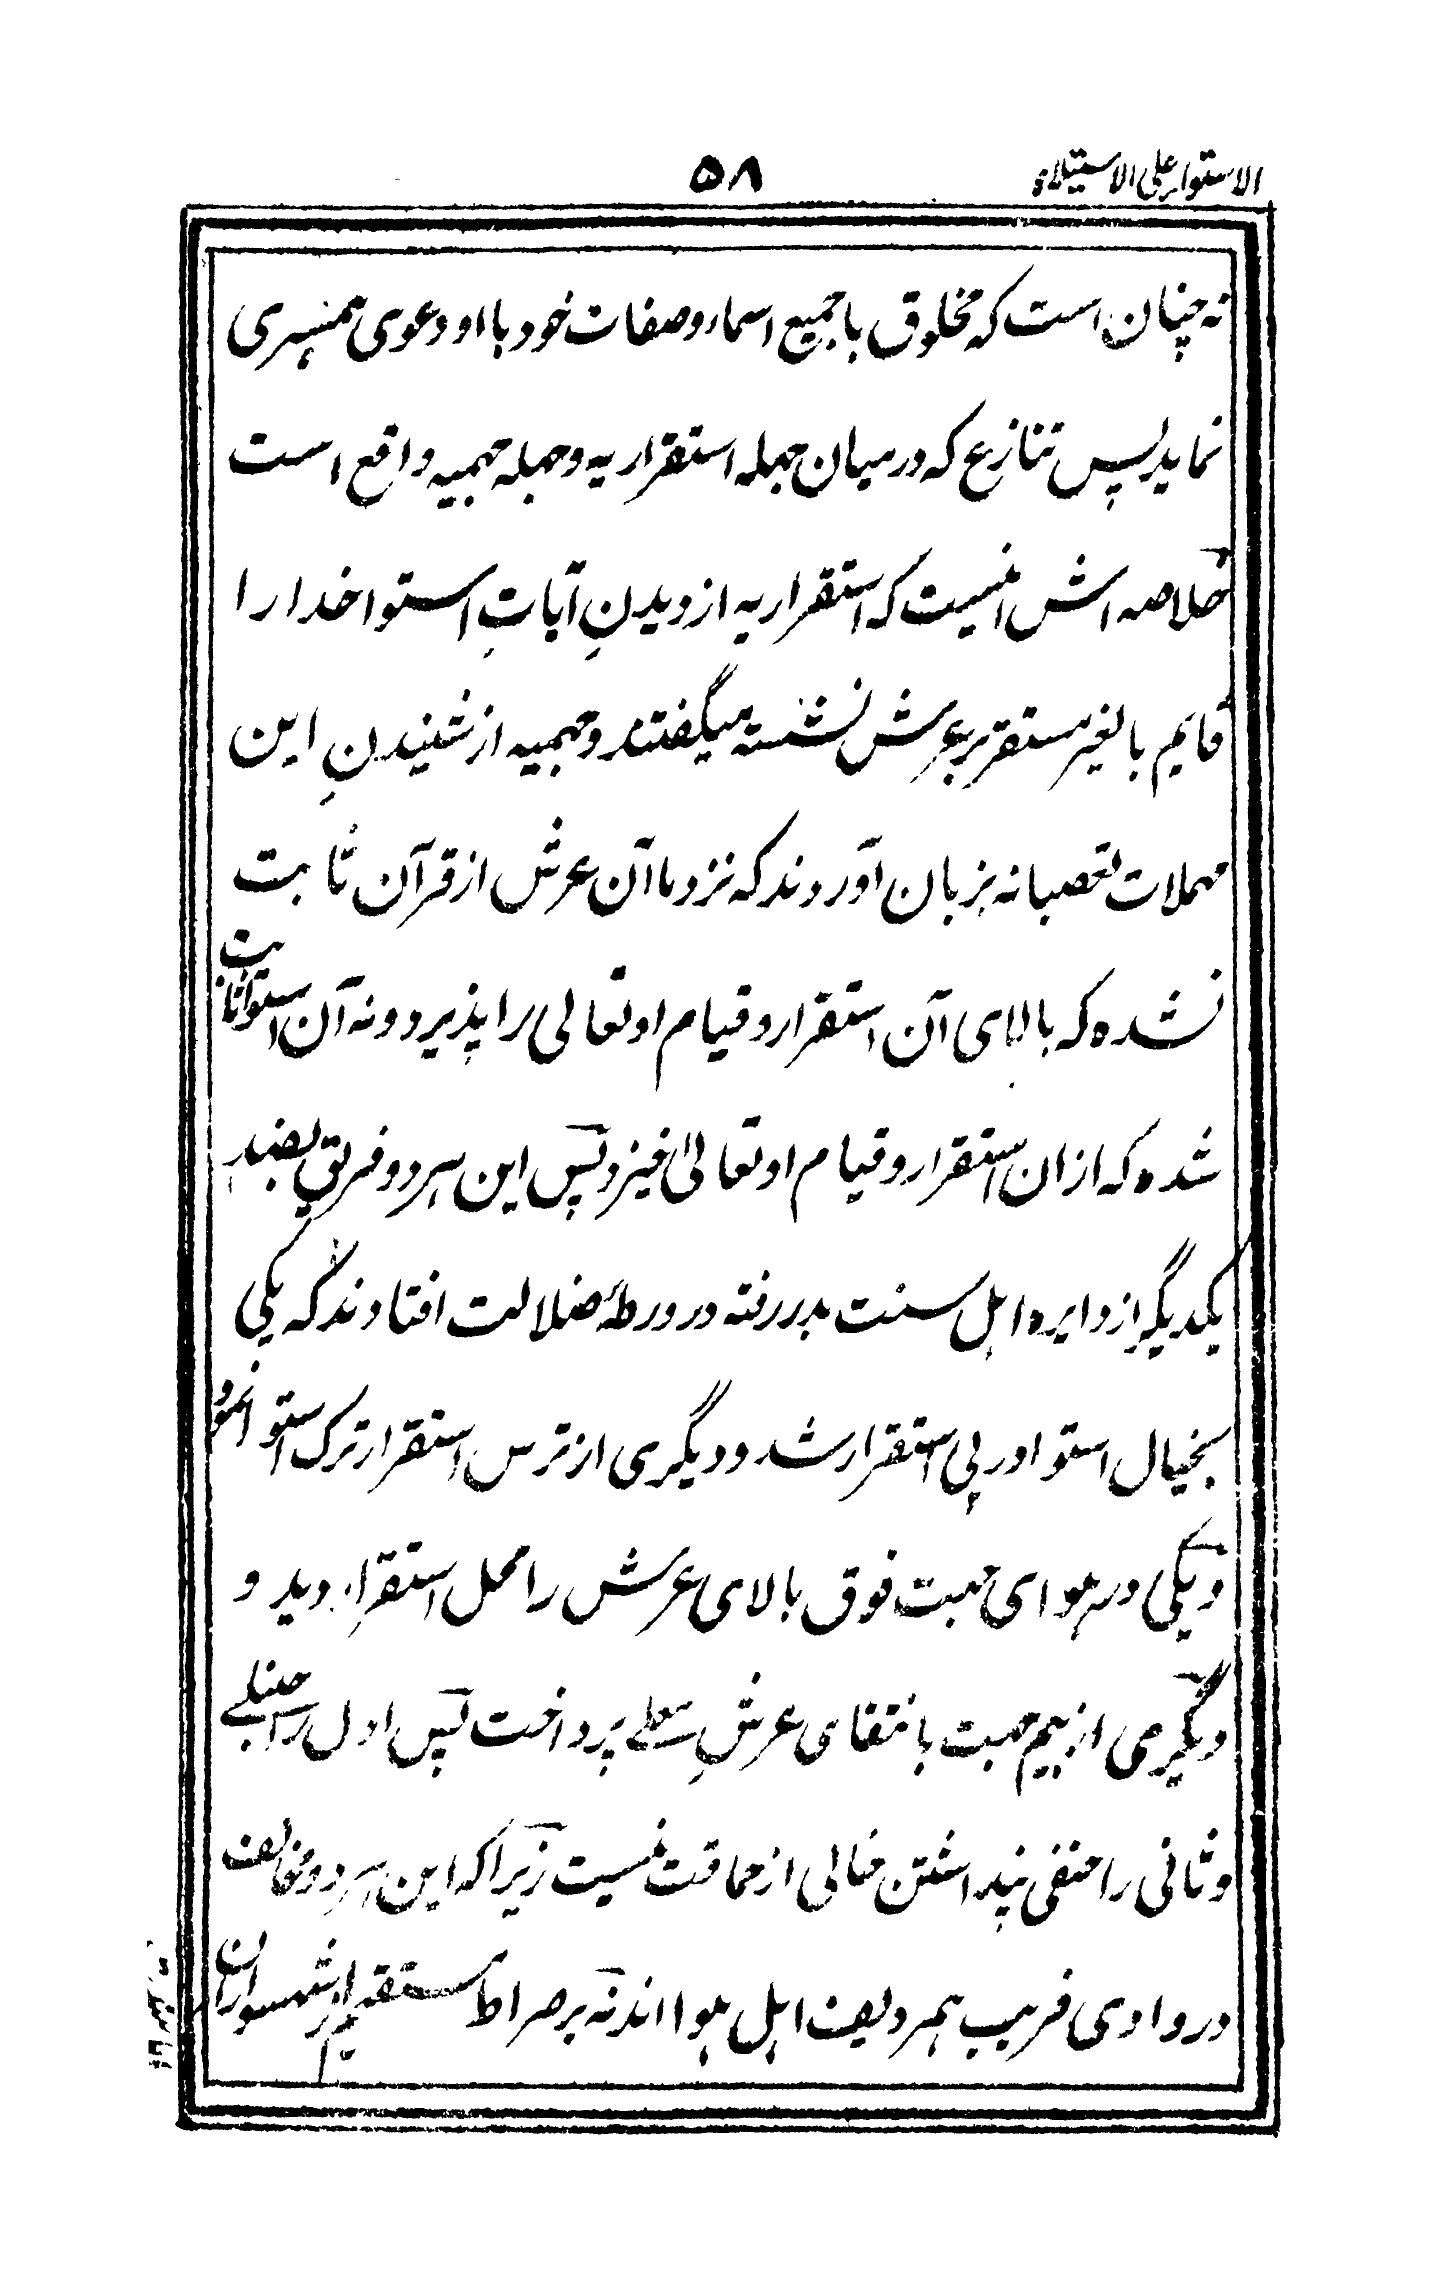 الاستواء علی الاستیلاء
۵۸
نه چنان است که مخلوق با جمیع اسماء و صفات خود با او دعوی همسری
نماید پس تنازع که درمیان جهله استقراریه و جهله جهمیه واقع است
خلاصه اش اینست که استقراریه از دیدنِ آیاتِ استوا خدا را
قایم بالغیر مستقر بر عرش نشسته میگفتند و جهمیه از شنیدنِ این
مهملات تعصبانه بزبان آوردند که نزد ما آن عرش از قرآن ثابت
نشده که بالای آن استقرار و قیام او تعالی را پذیرد و نه آن استوا ثابت
شده که ازان استقرار و قیام او تعالیٰ خیزد پس این هر دو فریق بضد
یکدیگر از دایره اهل سنت بدر رفته در ورطهٔ ضلالت افتادند که یکی
بخیال استوا در پی استقرار شد و دیگری از ترس استقرار ترک استوا نمود
و یکی در هوای جهت فوق بالای عرش را محل استقرار دید و
دیگری از بیم جهت بانتفای عرشِ معلے پرداخت پس اول را حنبلے
و ثانی را حنفی پنداشتن خالی از حماقت نیست زیرا که این هر دو مخالف
در وادی فریب همردیف اهل هوا اند نه بر صراط مستقیم از شهسواران